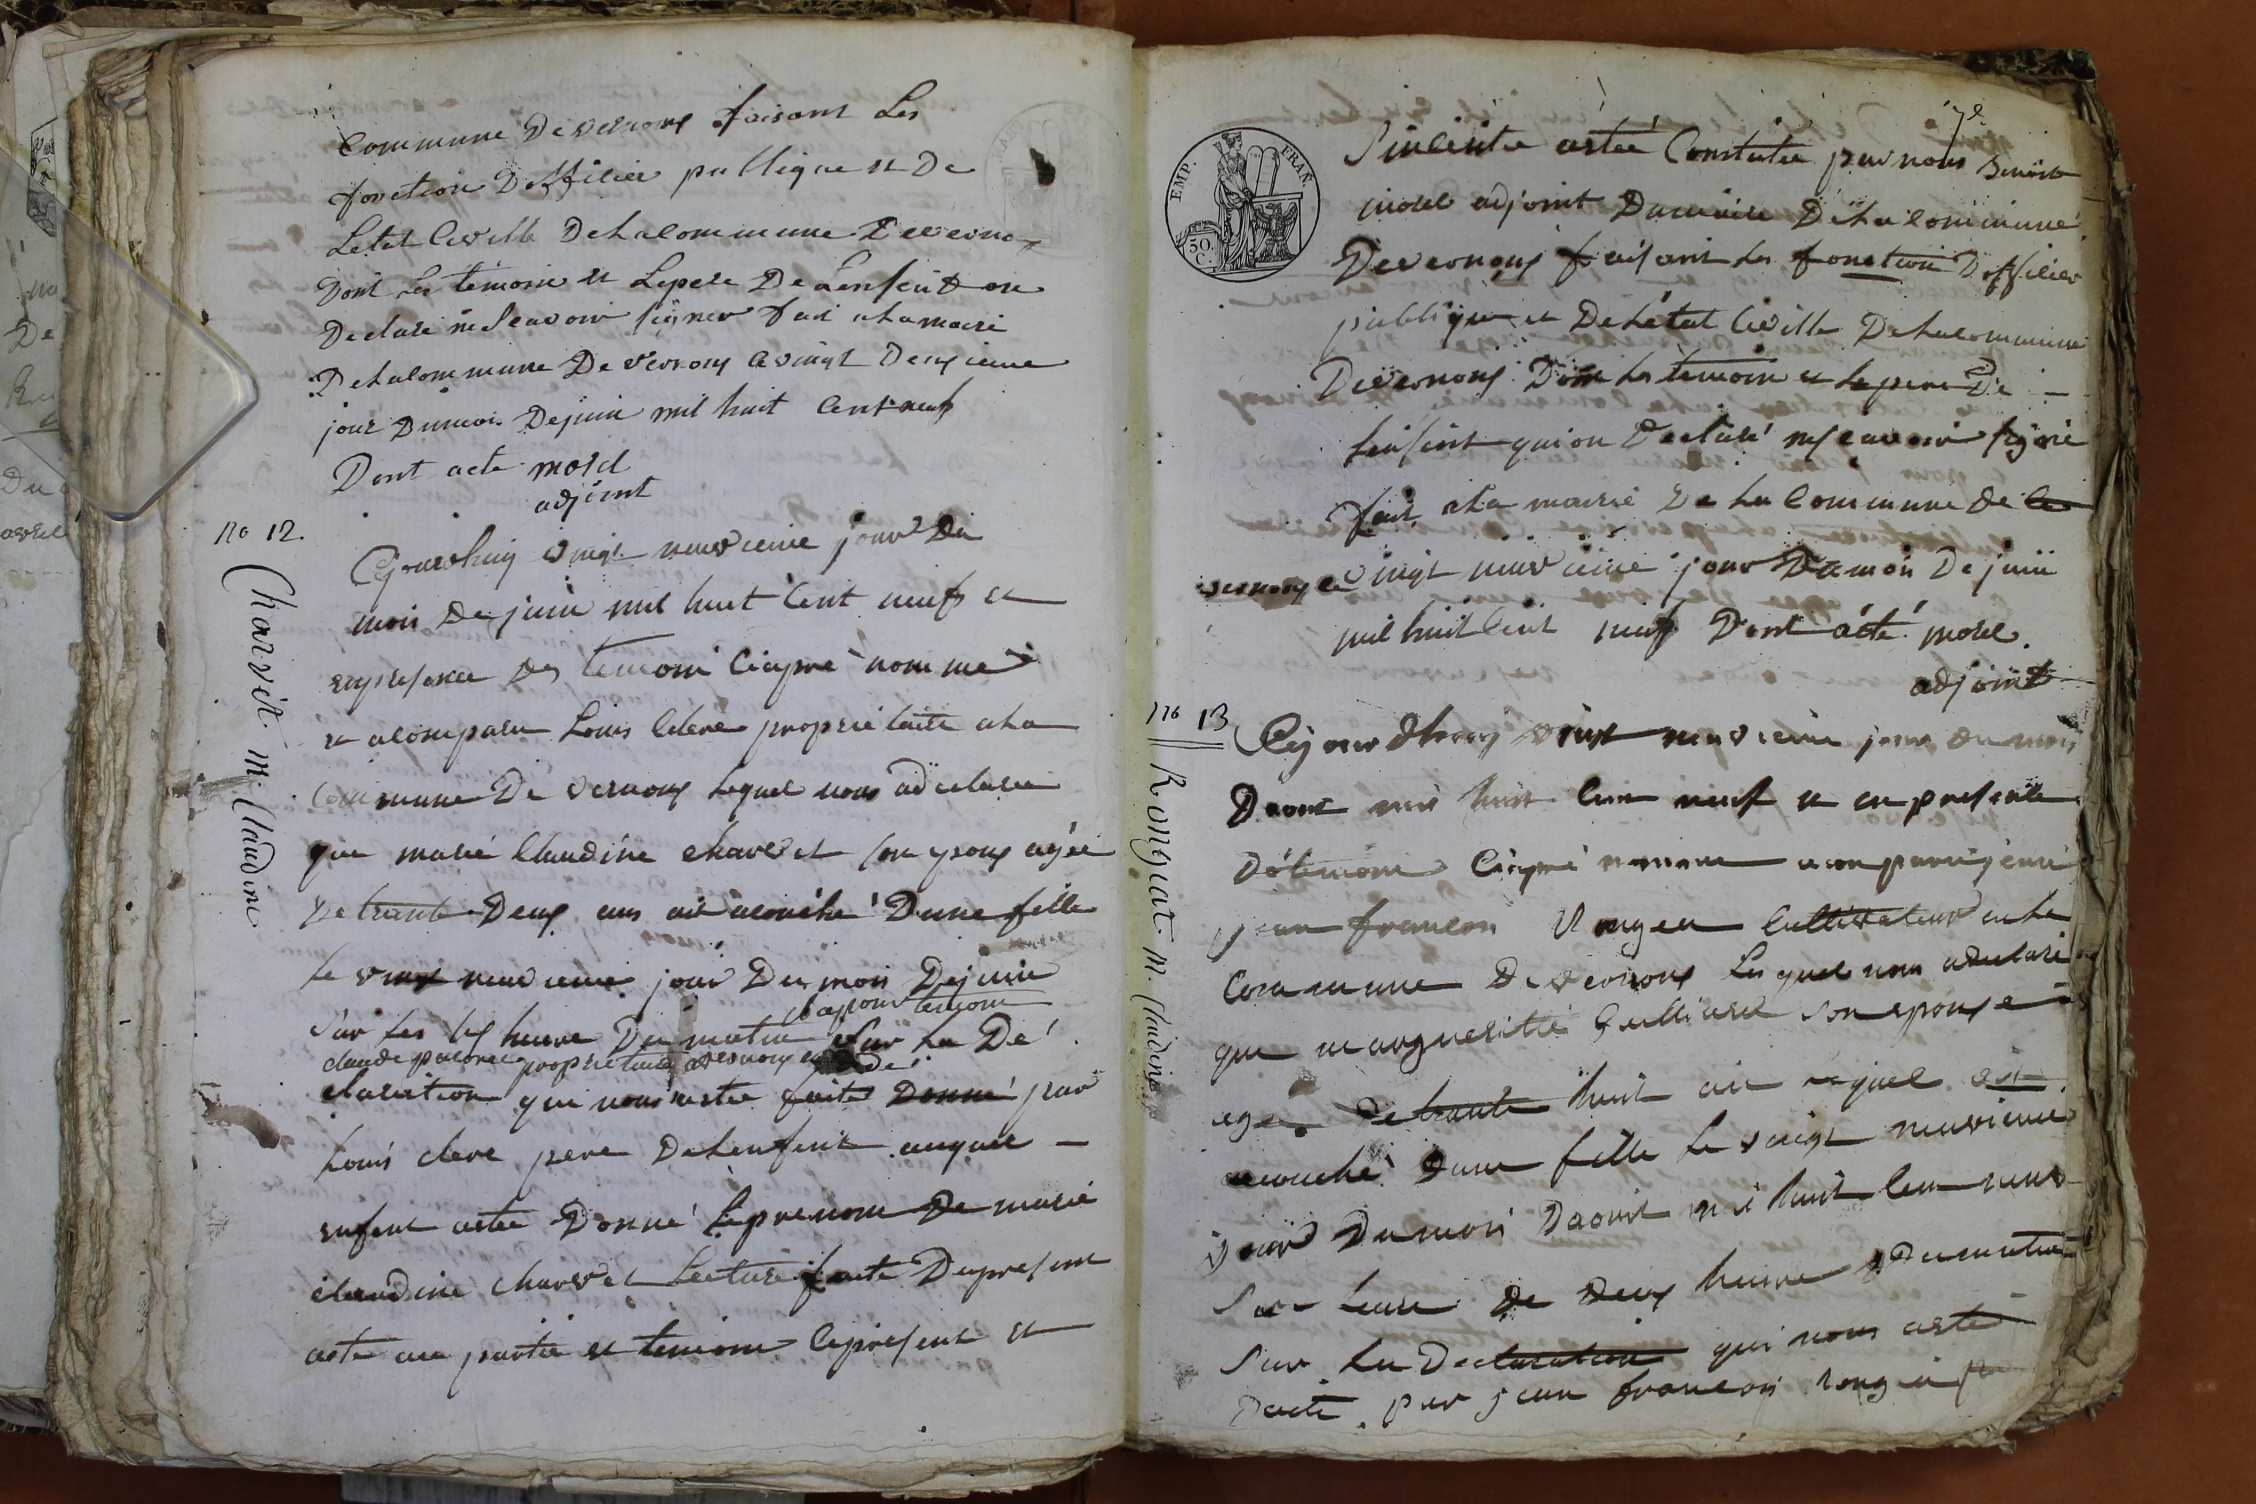 Commune De vernoux faisant Les
fonction Dofficier publique et De
Letat Civille Delacommune Devernox
Dont les temoin et Lepere De Lenfent on
Declare ne Scavoir Signer fait alamairi
Delacommune De vernoux le vingt Deuxieme
jour Dumois Dejuin mil huit Cent neuf
Dont acte morel
adjoint
no 12.
Charvet m. Claudine
Cejourdhuy vingt neuvieme jour Du
mois De juin mil huit Cent neuf et
enpresence des temoin Ciapre nomme
et acomparu Louis Clere proprietaire ala
Commune De vernoux Lequel nous adeclaree
que marie Claudine charvet son epoux agée
De trante Deux ans ait acouché Dune fille
Le vingt neuvieme jour Du mois Dejuin
Sur les six heure Du matin
et apour temoin
Sur La Dé
claude proprietaire a vernoux
claration qui nous aestee faite Donné par
Louis clere pere Delenfent auquel
enfent aestee Donné Leprenom De marie
claudine charvet Lecture faite Dupresent
acte au partie et temoin Cepresent et
EMP. FRAN.
50. C.
Suivente aetee Constatee par nous Benoist
morel adjoint Dumaire Delacommune
Devernoux faisant les fonction Dofficier
publique et Deletat Civille Delacommune
Devernoux Dont les temoin et Lepere De
Lenfent qui on Declaré nescavoir signé
fait ala mairie De La Commune de
vernoux le vingt neuvieme jour Dumois De juin
mil huit Cent neuf Dont acte morel.
adjoint
no 13
Rongeat m. Claudine
Cejourdhuy vingt neuvieme jour du mois
Daout mil huit Cent neuf et en presente
De temoin Ciapre nomme acomparu
jean francois Rongea Cultivateur enla
Commune De vernoux Lequel nous adeclaré
que marguerite Gulliard son epouse
age De trante huit ans Laquel est
acouché Dune fille Le vingt neuvieme
jour Dumois Daout mil huit Cent neuf
Sur Leure De Deux heure Dumatin
Sur La Declaration qui nous aesté
Daite par jean francois Rongea